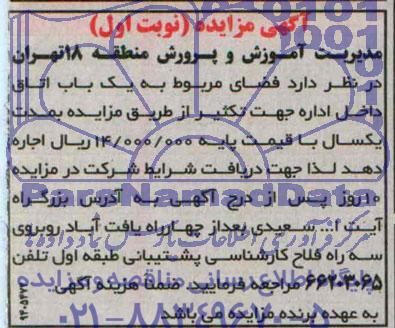 آگهی مزایده (نوبت اول)
مدیریت آموزش و پرورش منطقه ۱۸ تهران
در نظر دارد فضای مربوط به یک باب اتاق
داخل اداره جهت تکثیر از طریق مزایده بمدت
یکسال با قیمت پایه ۱۴/۰۰۰/۰۰۰ ریال اجاره
دهد لذا جهت دریافت شرایط شرکت در مزایده
ParsNamadData
۱۰روز پس از درج آگهی به آدرس بزرگراه
آیت ا... سعیدی بعداز چهارراه یافت آباد روبروی
سه راه فلاح کارشناسی پشتیبانی طبقه اول تلفن
۶۶۲۰۳۰۶۵ مراجعه فرمایید. ضمنا هزینه آگهی
به عهده برنده مزایده می باشد